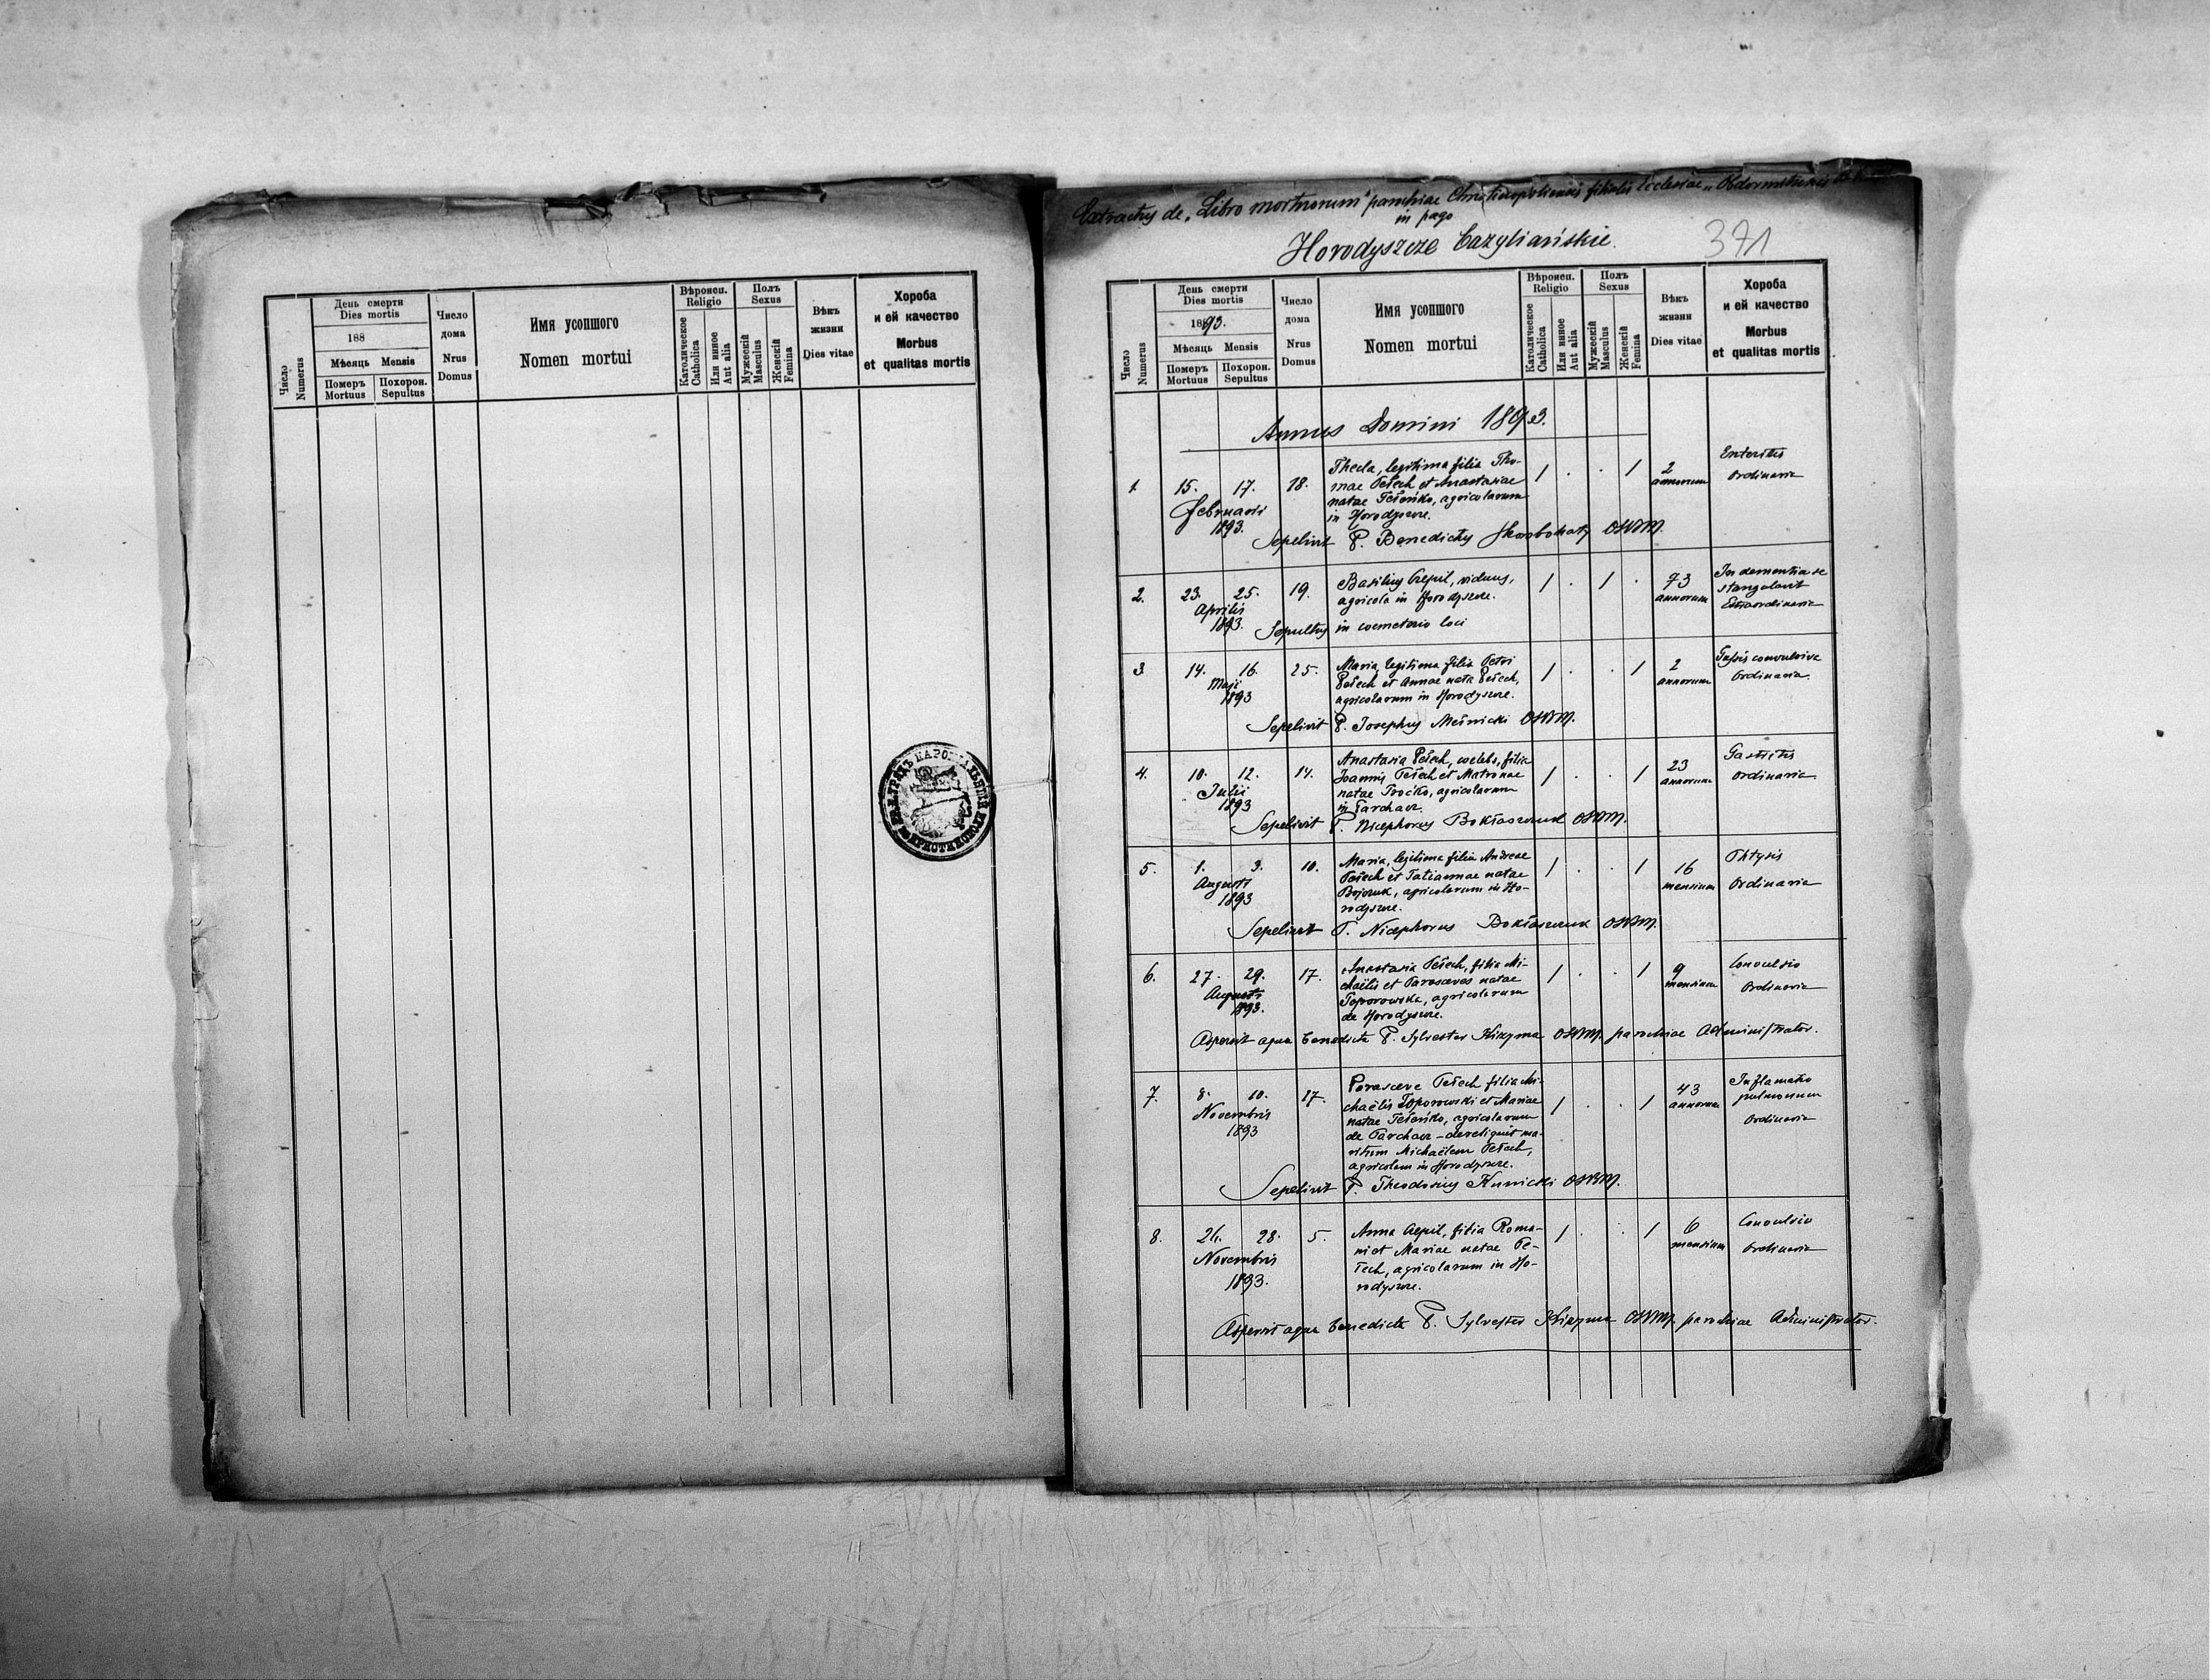 День смерти
Dies mortis
188
Мѣсяць Mensis
Померъ
Mortuus
Похорон.
Sepultus
Число
Numerus
Число
дома
Nrus
Domus
Имя усопшого
Nomen mortui
Вѣроисп.
Religio
Католическое
Catholica
Или инное
Aut alia
Полъ
Sexus
Мужескій
Masculus
Женскій
Femina
Вѣкъ
жизни
Dies vitae
Хороба
и ей качество
Morbus
et qualitas mortis
Extractus de „Libro mortuorum" parochiae Christinopoliensis filialis Ecclesiae
in pago
Horodyszcze bazyliańskie.
371
Число
Numerus
День смерти
Dies mortis
1893.
Мѣсяць Mensis
Померъ
Mortuus
Похорон.
Sepultus
Число
дома
Nrus
Domus
Имя усопшого
Nomen mortui
Вѣроисп.
Religio
Католическое
Catholica
Или инное
Aut alia
Полъ
Sexus
Мужескій
Masculus
Женскій
Femina
Вѣкъ
жизни
Dies vitae
Хороба
и ей качество
Morbus
et qualitas mortis
Annus Domini 1893.
1. 15. 17. Februarii 1893. 18.
Thecla, legitima filia Tho-
mae Pełech et Anastasiae
natae Pełeńko, agricolarum
in Horodyszcze.
1 . . 1 2 annorum
Enteritis
Ordinaria
Sepelivit P. Benedictus OSBM.
2. 23. 25. Aprilis 1893. 19.
Basilius Czepil, viduus,
agricola in Horodyszcze.
1 . 1 . 73 annorum
In dementia se
stangulavit
Extraordinaria
Sepultus in coemeterio loci
3 14. 16. Maji 1893 25.
Maria, legitima filia Petri
Pełech et Annae nata Pełech,
agricolarum in Horodyszcze.
1 . . 1 2 annorum
Tussis convulsiva
Ordinaria
Sepelivit P. Josephus OSBM.
4. 10. 12. Julii 1893 14.
Anastasia Pełech, coelebs, filia
Joannis Pełech et Matronae
natae agricolarum
in Parchacz
1 . . 1 23 annorum
Gastritis
Ordinaria
Sepelivit P. Nicephorus OSBM.
5. 1. 3. Augusti 1893 10.
Maria, legitima filia Andreae
Pełech et Tatiannae natae
Bojczuk, agricolarum in Ho-
rodyszcze.
1 . . 1 16 mensium
Phtysis
Ordinaria
Sepelivit P. Nicephorus OSBM.
6. 27. 29. Augusti 1893. 17.
Anastasia Pełech, filia Mi-
chaëlis et Parasceves natae
Toporowska, agricolarum
de Horodyszcze.
1 . . 1 9 mensium
Convulsio
Ordinaria
Aspersit aqua benedicta P. Sylvester OSBM. parochiae Administrator.
7. 8. 10. Novembris 1893 17.
Parasceve Pełech filia Mi-
chaëlis Toporowski et Mariae
natae Pełeńko, agricolarum
de Parchacz - dereliquit ma-
ritum Michaëlem Pełech,
agricolam in Horodyszcze.
1 . . 1 43 annorum
Inflamatio
pulmonum
Ordinaria
Sepelivit P. Theodosius OSBM.
8. 26. 28. Novembris 1893. 5.
Anna Czepil, filia Roma-
ni et Mariae natae Pe-
łech, agricolarum in Ho-
rodyszcze.
1 . . 1 6 mensium
Convulsio
Ordinaria
Aspersit aqua benedicta P. Sylvester OSBM. parochiae Administrator.